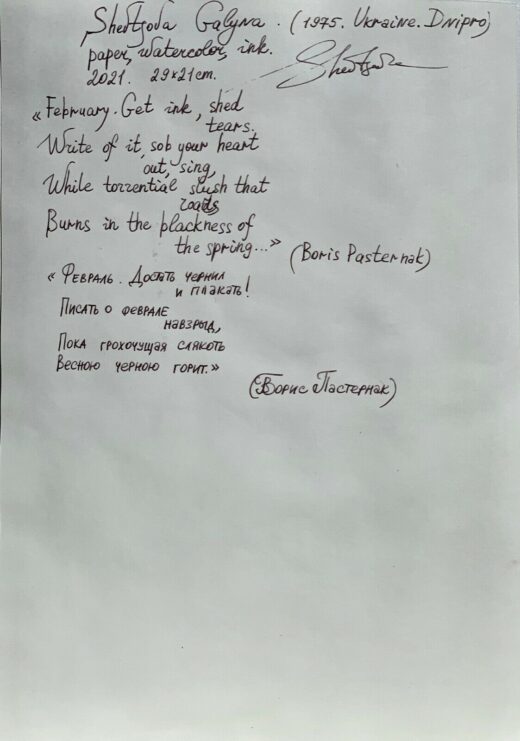 Shevtsova Galyna. (1975. Ukraine. Dnipro)
paper, watercolor, ink.
2021. 29x21cm.
«February. Get ink, shed
tears.
Write of it, sob your heart
out, sing,
While torrential slush that
roads
Burns in the blackness of
the spring...»
(Boris Pasternak)
«Февраль. Достать чернил
и плакать!
Писать о феврале
навзрыд,
Пока грохочущая слякоть
Весною черною горит.»
(Борис Пастернак)